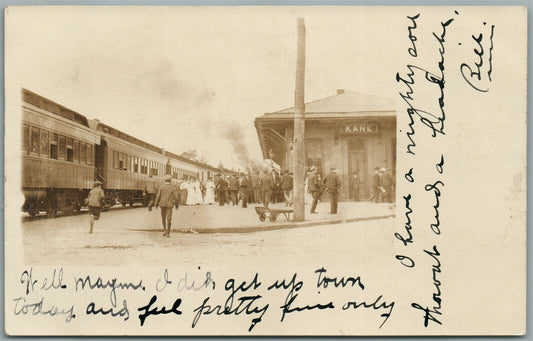 KANE
Well mayme I did get up town
today and feel pretty fine only
I have a mighty sore
thoroat and a headache.
Bill.